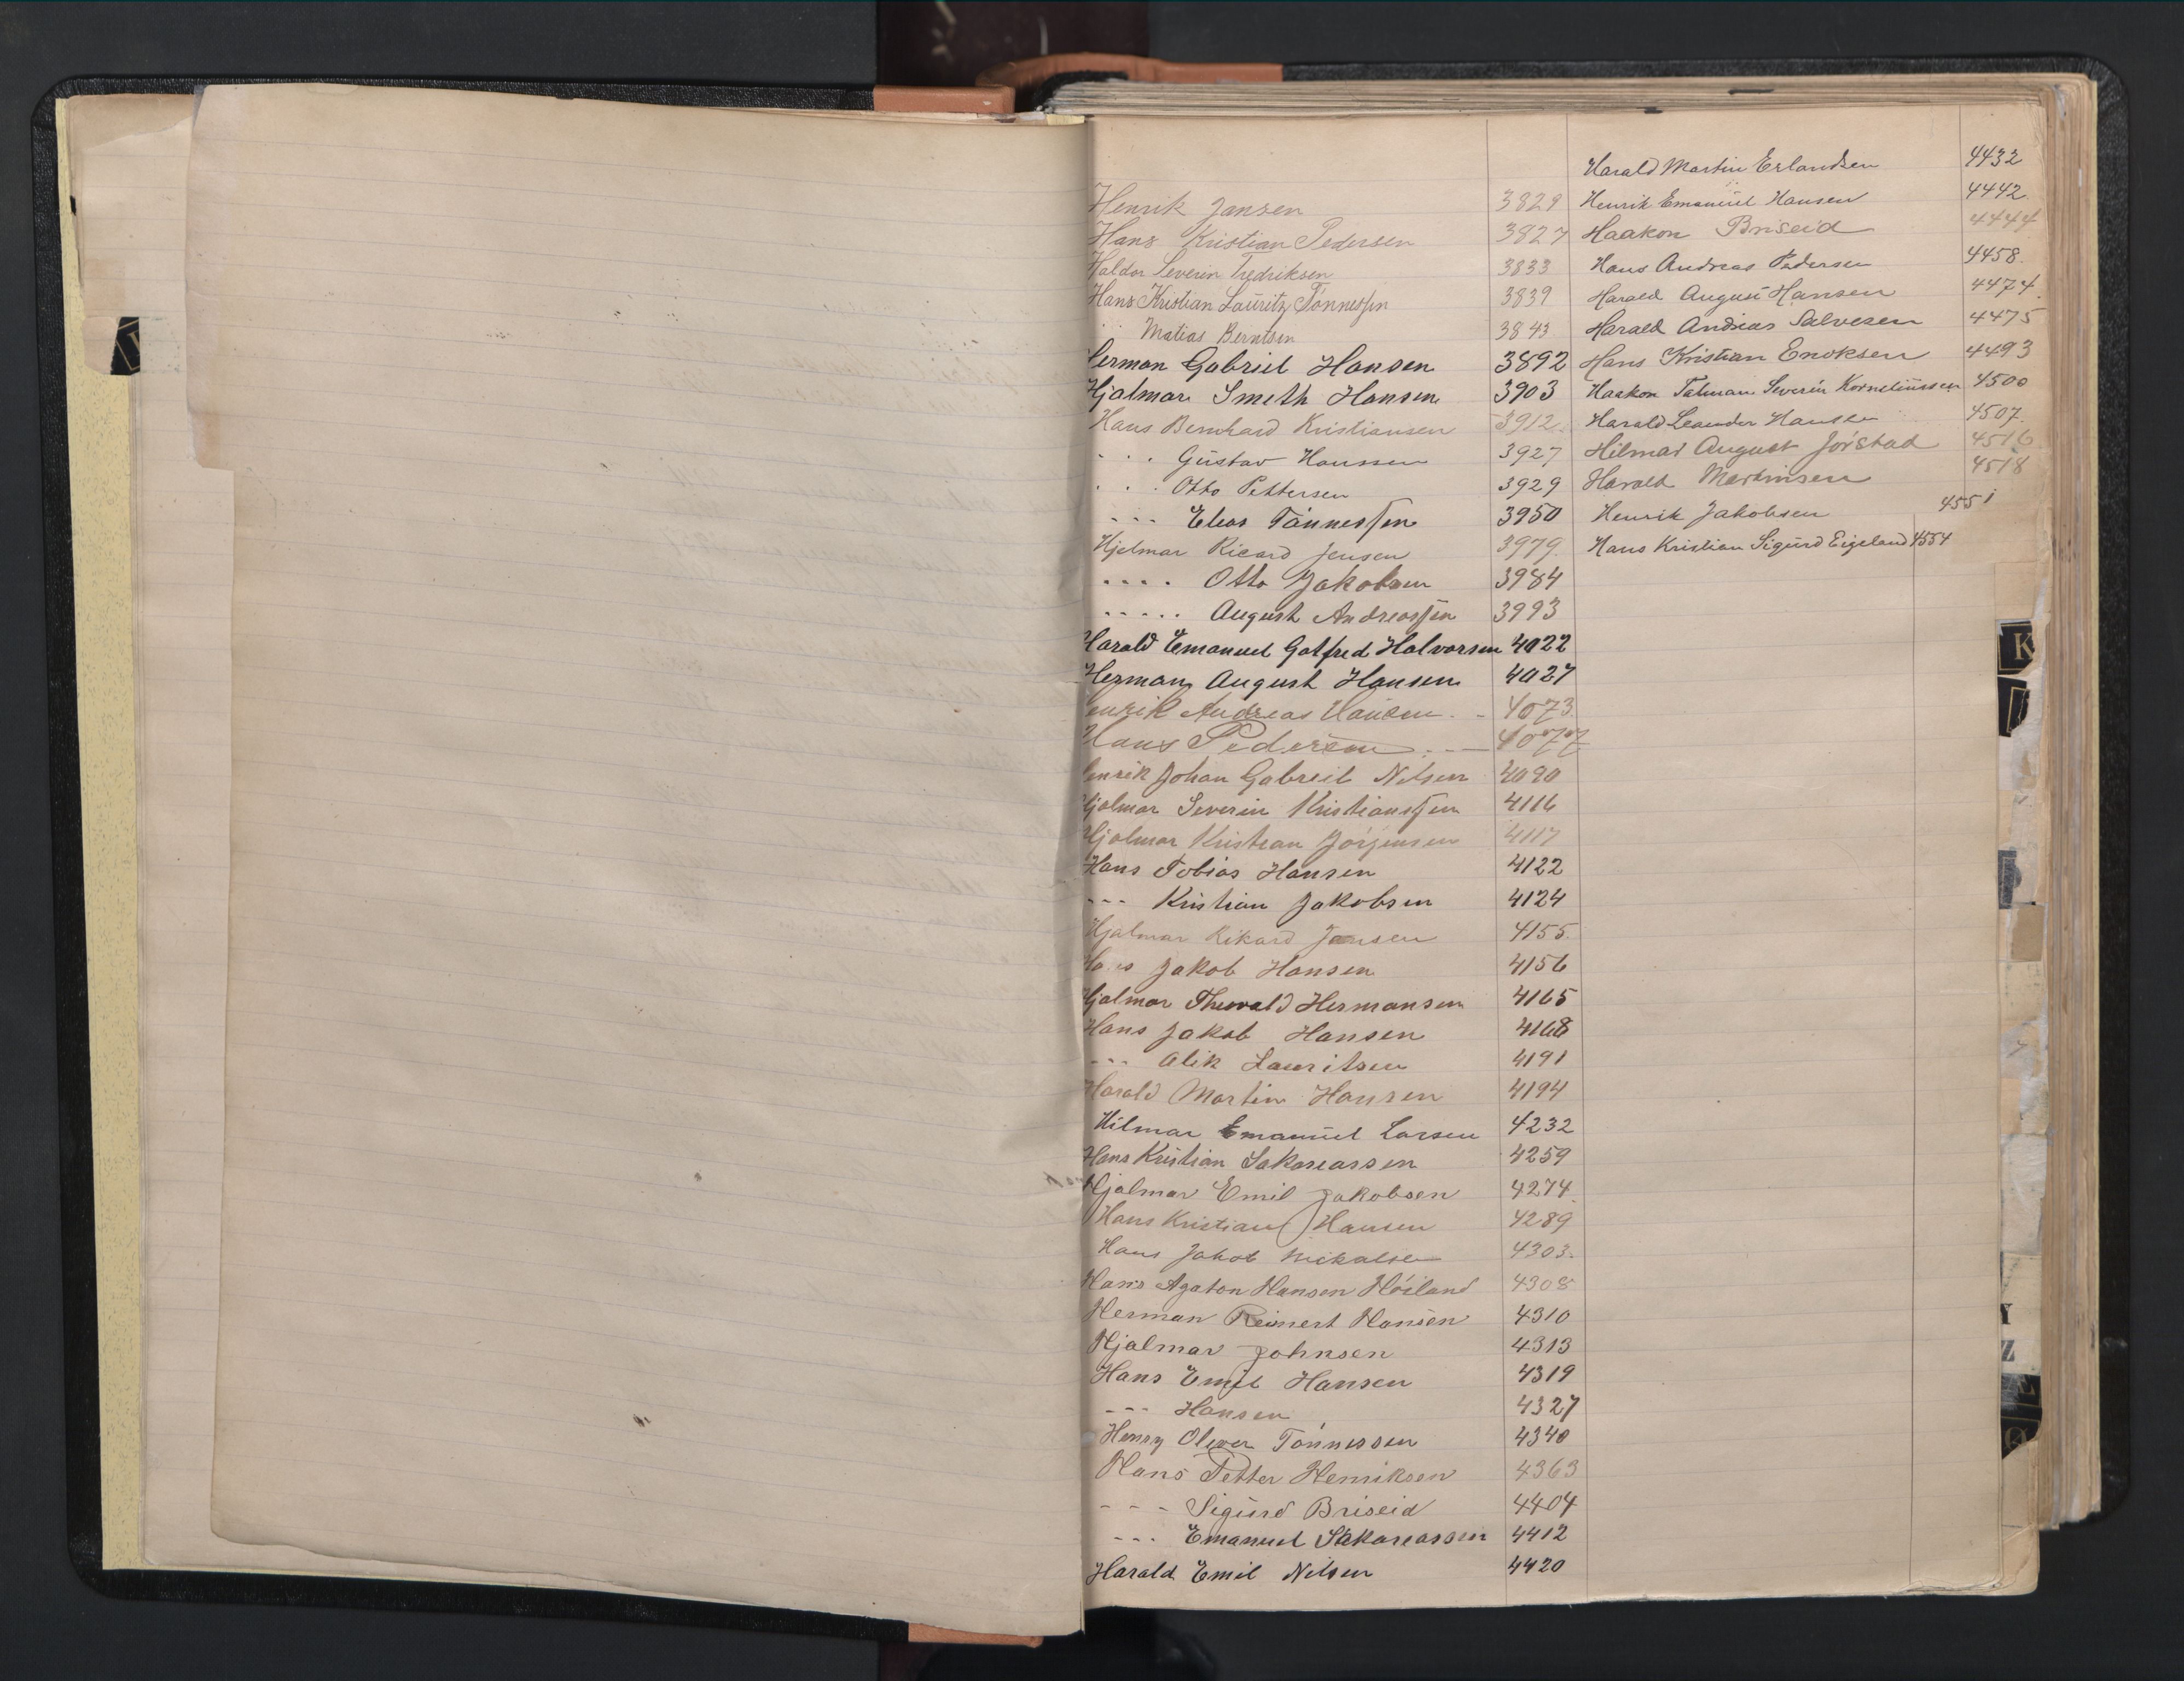 Henrik Jansen 3829
Hans Kristian Pedersen 3827
Haldor Severin Fredriksen 3833
Hans Kristian Lauritz Tönnessen 3839
" Matias Berntsen 3843
Herman Gabriel Hansen 3892
Hjalmar Smeth Hansen 3903
Hans Bernhard Kristiansen 3912
- - - Gustav Hanssen 3927
- - - Otto Pettersen 3929
- - - Elias Tönnessen 3950
Hjelmar Ricard Jensen 3979
- - - - Otto Jakobsen 3984
- - - - - August Andreassen 3993
Harald Emanuel Gotfred Halvorsen 4022
Herman August Hansen 4027
Henrik Andreas Hansen - - 4073
Hans Pedersen - - - 4077
Henrik Johan Gabreil Nilsen 4090
Hjalmar Severin Kristianssen 4116
Hjalmar Kristian Jörgensen 4117
Hans Tobias Hansen 4122
- - - Kristian Jakobsen 4124
Hjalmar Rikard Jensen 4155
Hans Jakob Hansen 4156
Hjalmar Thorvald Hermansen 4165
Hans Jakob Hansen 4168
- - - Alik Lauritsen 4191
Harald Martin Hansen 4194
Hilmar Emanuel Larsen 4232
Hans Kristian Sakareassen 4259
Hjalmar Emil Jakobsen 4274
Hans Kristian Hansen 4289
Hans Jakob Mickalsen 4303
Hans Agaton Hansen Höiland 4308
Herman Reinert Hansen 4310
Hjalmar Johnsen 4313
Hans Emil Hansen 4319
- - - Hansen 4327
Henry Oliver Tönnessen 4340
Hans Petter Henriksen 4363
- - - Sigurd Briseid 4404
- - - Emanuel Sakareassen 4412
Harald Emil Nilsen 4420
Harald Martin Erlandsen 4432
Henrik Emanuel Hansen 4442
Haakon Briseid 4444
Hans Andreas Pedersen 4458
Harald August Hansen 4474
Harald Andreas Salvesen 4475
Hans Kristian Enoksen 4493
Haakon Talman Severin Korneliussen 4500
Harald Leander Hansen 4507
Hilmar August Jörstad 4516
Harald Martinsen 4518
Henrik Jakobsen 4551
Hans Kristian Sigurd Eigeland 4554
K
Y
Z